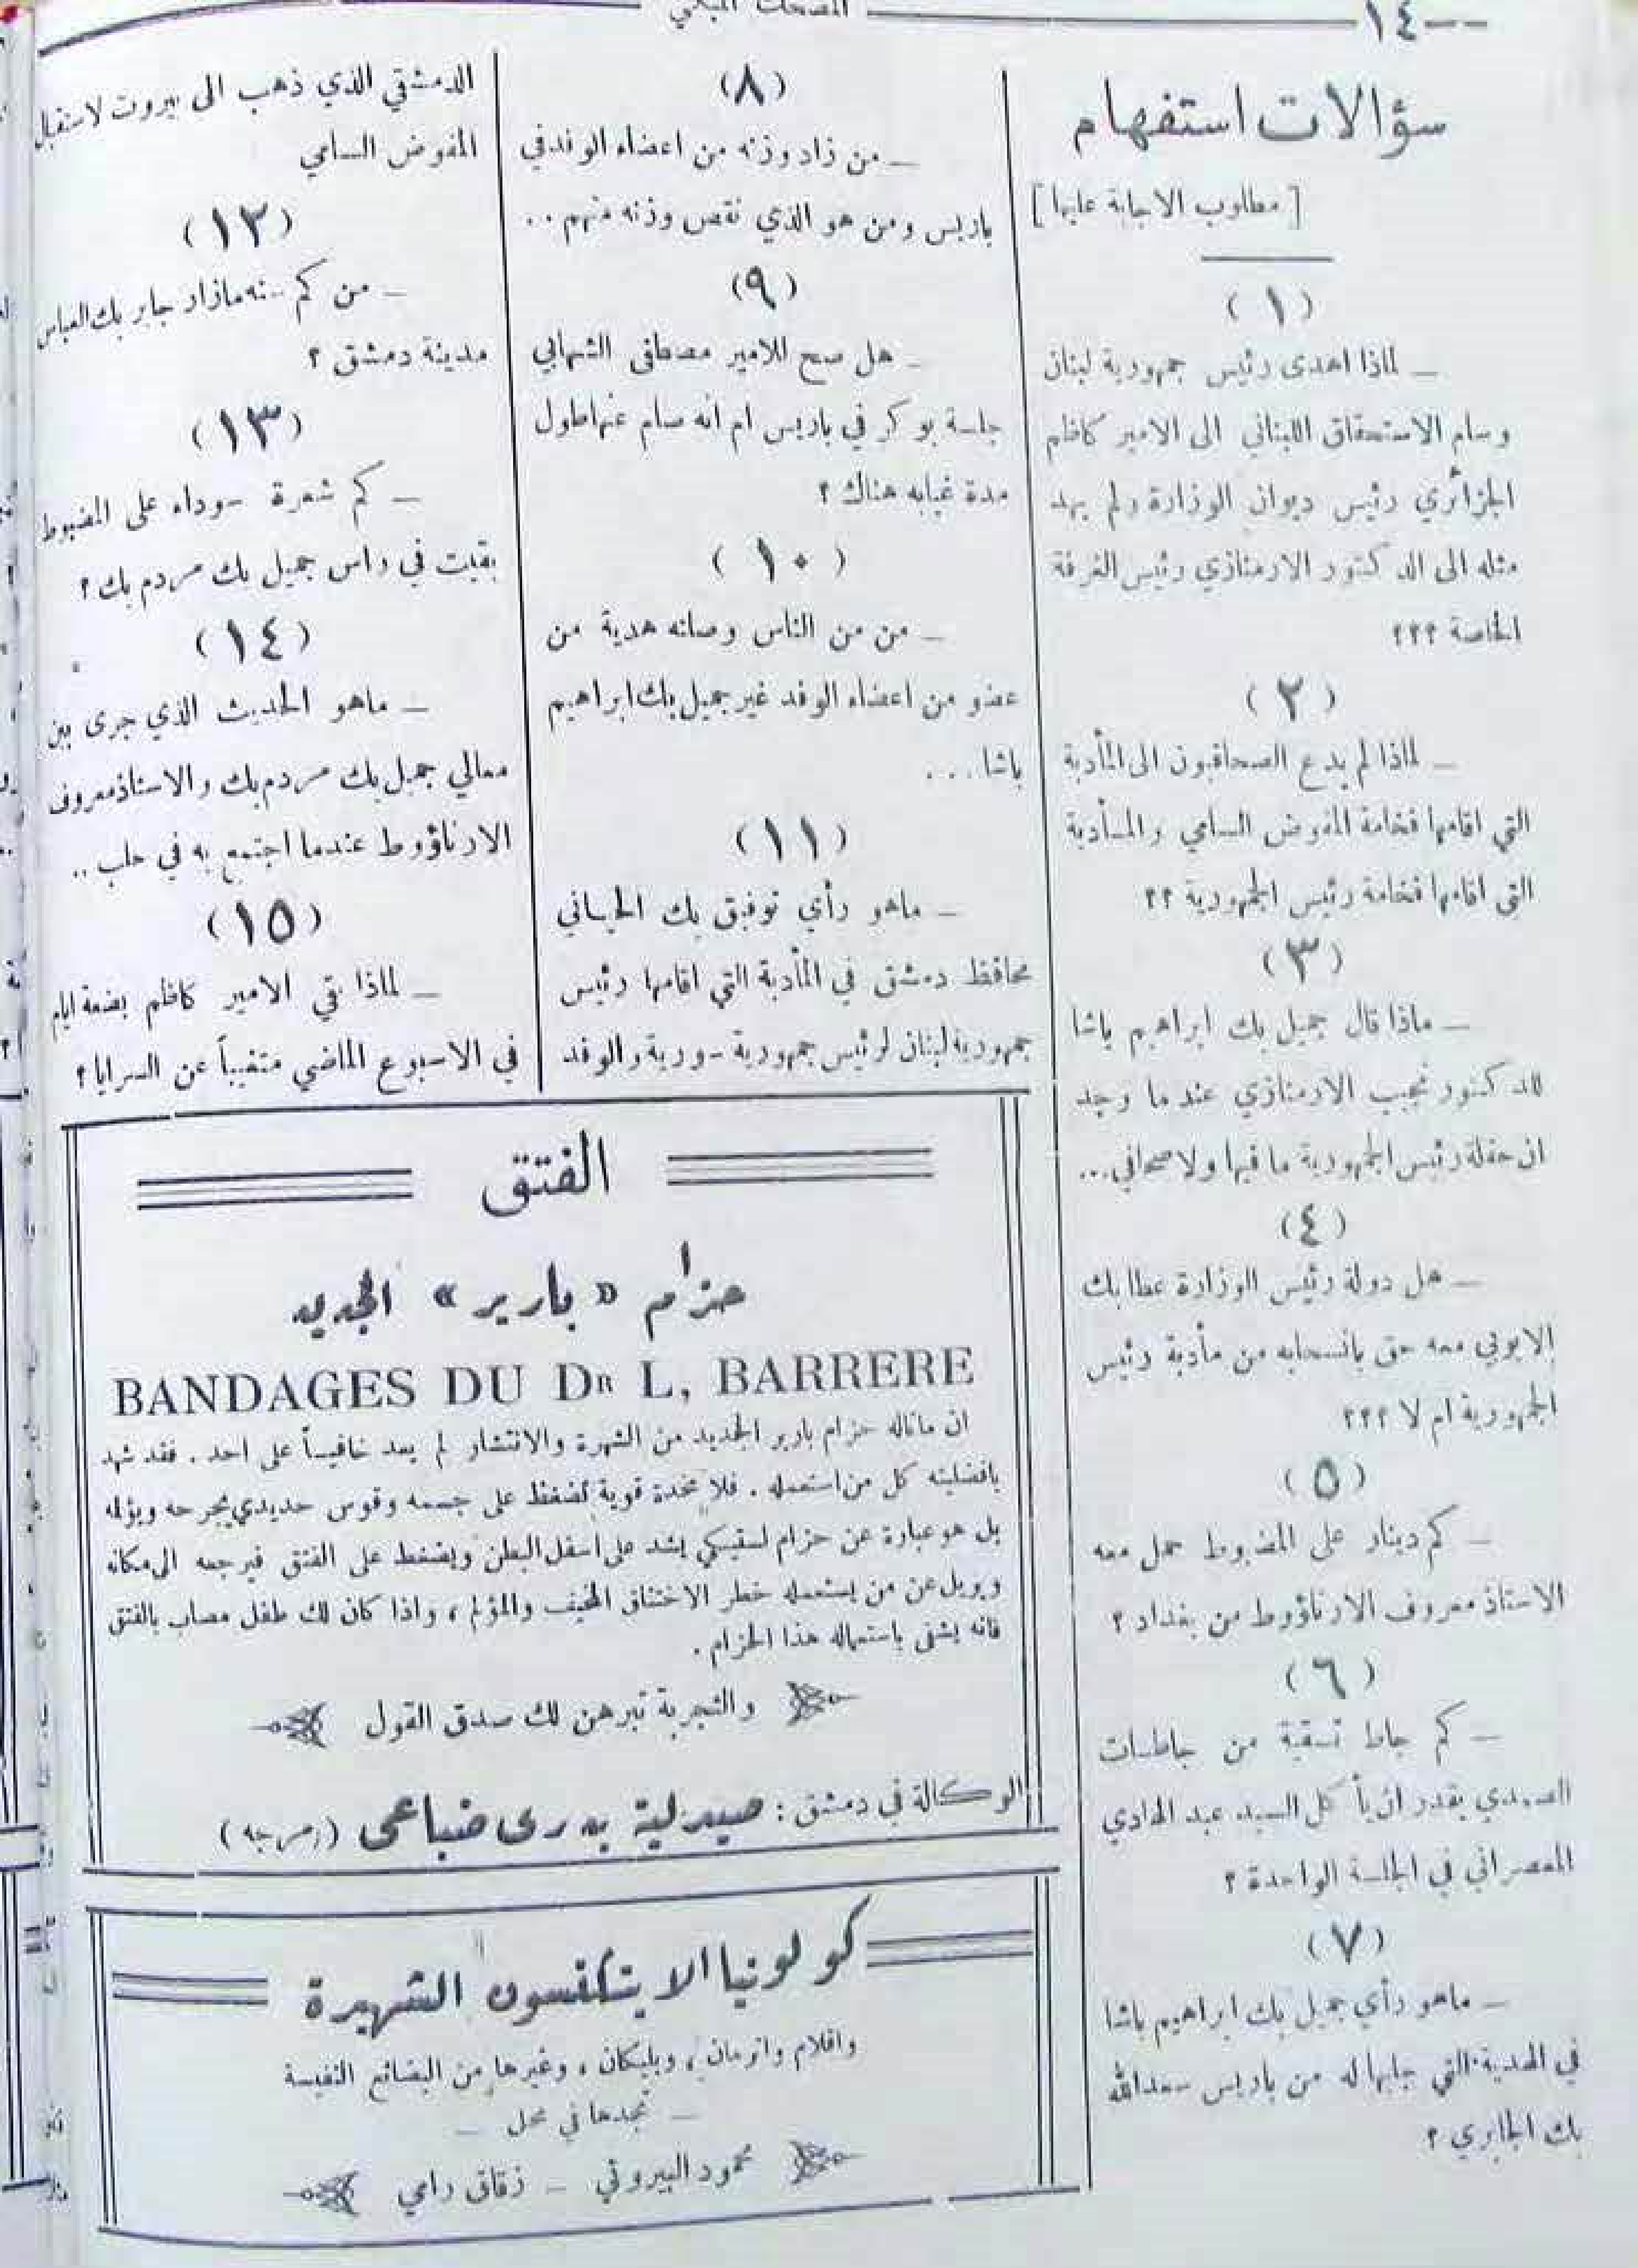 ١٤
المضحك المبكي
سؤالات استفهام
[ مطلوب الاجابة عليها ]
( ١ )
ــ لماذا اهدى رئيس جمهورية لبنان
وسام الاستحقاق اللبناني الى الامير كاظم
الجزائري رئيس ديوان الوزارة ولم يهد
مثله الى الدكتور الارمنازي رئيس الغرفة
الخاصة ؟؟؟
( ٢ )
ــ لماذا لم يدع الصحافيون الى المأدبة
التي اقامها فخامة المفوض السامي والمأدبة
التي اقامها فخامة رئيس الجمهورية ؟؟
( ٣ )
ــ ماذا قال جميل بك ابراهيم باشا
للدكتور نجيب الارمنازي عندما وجد
ان حفلة رئيس الجمهورية ما فيها ولا صحافي...
( ٤ )
ــ هل دولة رئيس الوزارة عطا بك
الايوبي معه حق بانسحابه من مأدبة رئيس
الجمهورية ام لا ؟؟؟
( ٥ )
ــ كم دينار على المضبوط حمل معه
الاستاذ معروف الارناؤوط من بغداد ؟
( ٦ )
ــ كم جاط تسقية من جاطات
الصيدي يقدر ان يأكل السيد عبد الهادي
المعصراني في الجلسة الواحدة ؟
( ٧ )
ــ ماهو رأي جميل بك ابراهيم باشا
في الهدية التي جلبها له من باريس سعدالله
بك الجابري ؟
( ٨ )
ــ من زاد وزنه من اعضاء الوفد في
باريس ومن هو الذي نقص وزنه منهم ..
( ٩ )
ــ هل صح للامير مصطفى الشهابي
جلسة بوكر في باريس ام انه صام عنها طول
مدة غيابه هناك ؟
( ١٠ )
ــ من من الناس وصلته هدية من
عضو من اعضاء الوفد غير جميل بك ابراهيم
باشا ....
( ١١ )
ــ ماهو رأي توفيق بك الحياني
محافظ دمشق في المأدبة التي اقامها رئيس
جمهورية لبنان لرئيس جمهورية سورية والوفد
الدمشقي الذي ذهب الى بيروت لاستقبال
المفوض السامي
( ١٢ )
ــ من كم سنه مازار جابر بك العباس
مدينة دمشق ؟
( ١٣ )
ــ كم شعرة سوداء على المضبوط
بقيت في راس جميل بك مردم بك ؟
( ١٤ )
ــ ماهو الحديث الذي جرى بين
معالي جميل بك مردم بك والاستاذ معروف
الارناؤوط عندما اجتمع به في حلب ..
( ١٥ )
ــ لماذا بقي الامير كاظم بضعة ايام
في الاسبوع الماضي متغيباً عن السرايا ؟
الفتق
حزام « بارير » الجديد
BANDAGES DU DR L, BARRERE
ان ماناله حزام بارير الجديد من الشهرة والانتشار لم يعد خافياً على احد . فقد شهد
بافضليته كل من استعمله . فلا مخدة قوية تضغظ على جسمه وقوس حديدي يجرحه ويؤلمه
بل هو عبارة عن حزام لستيكي يشد على اسفل البطن ويضغط على الفتق فيرجعه الى مكانه
ويزيل عن من يستعمله خطر الاختناق المخيف والمؤلم ، واذا كان لك طفل مصاب بالفتق
فانه يشفى باستعماله هذا الحزام .
والتجربة تبرهن لك صدق القول
الوكالة في دمشق : صيدلية بدري ضباعي (مرجه)
كولونيا الاتكنسون الشهيرة
واقلام واترمان ، وبليكان ، وغيرها من البضائع النفيسة
ــ تجدها في محل ــ
محمود البيروتي ــ زقاق رامي